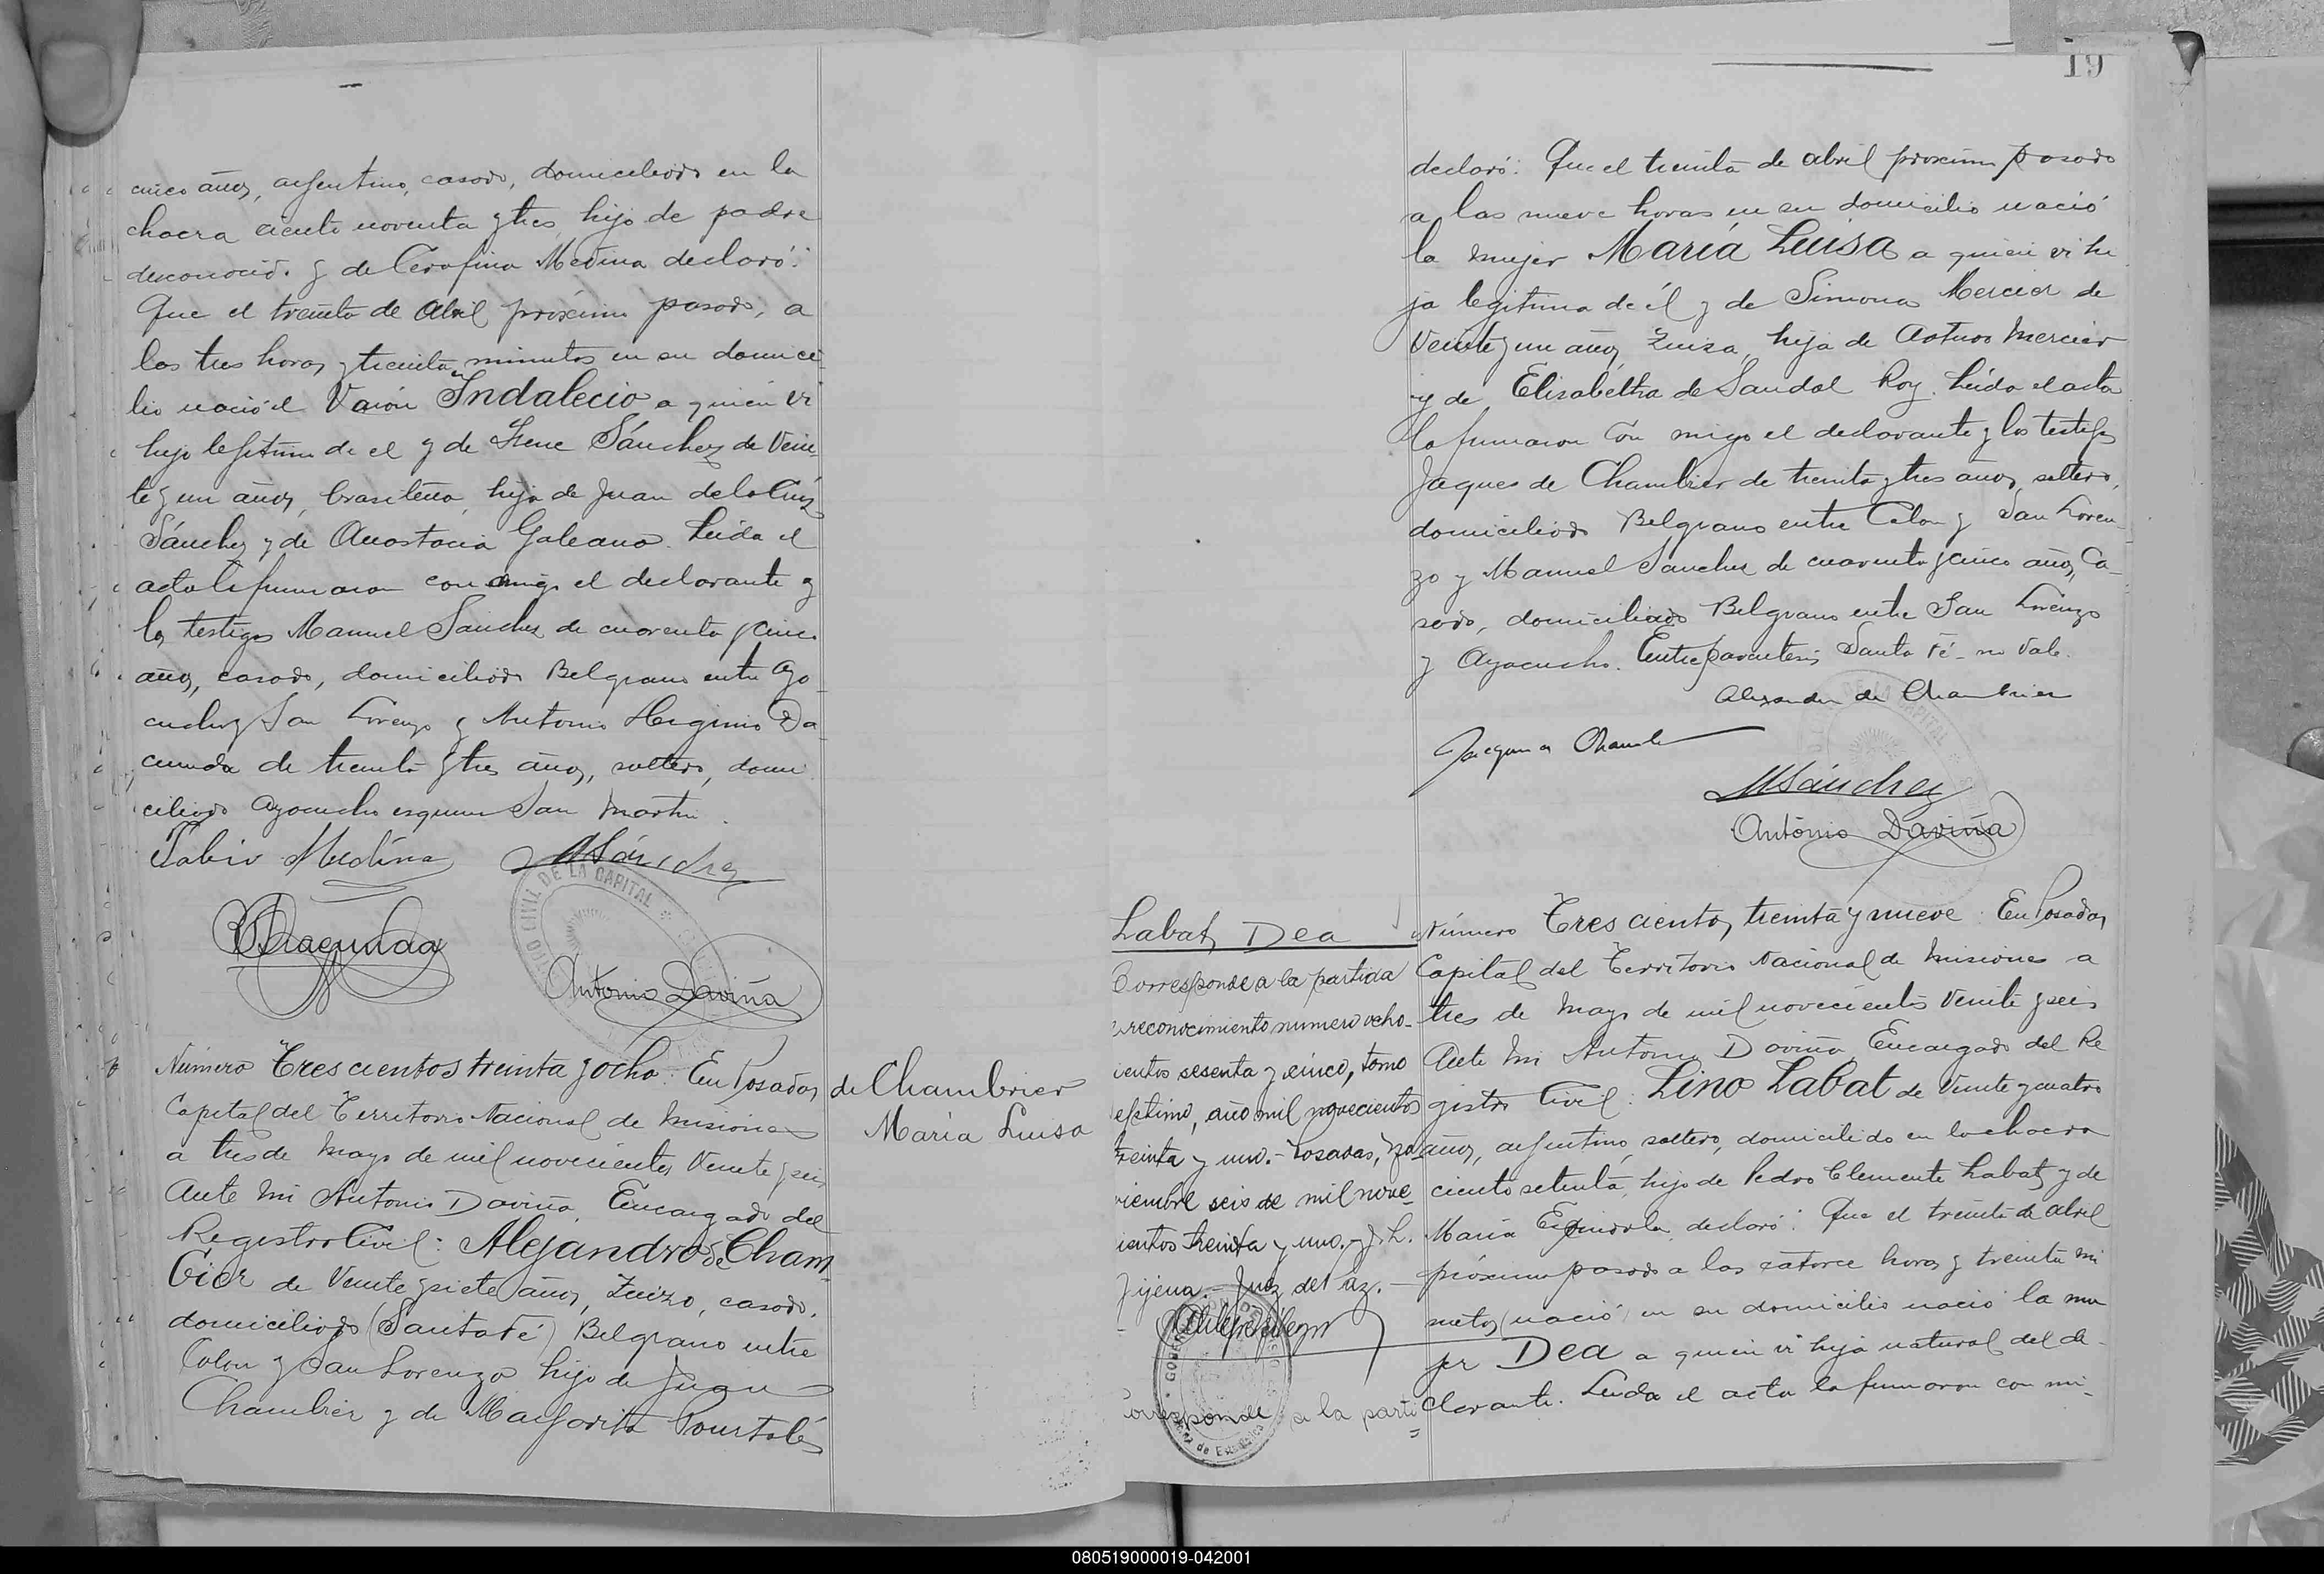 cinco años, argentino, casado, domiciliado en la
chacra ciento noventa y tres, hijo de padre
desconocido y de Cerafina Medina declaró:
Que el treinta de Abril próximo pasado, a
las tres horas y treinta minutos en su domici
lio nació el Varón Indalecio a quien vi
hijo legítimo de el y de Irene Sánchez de Vein
te y un años, brasileña, hija de Juan de la Cruz
Sánchez y de Anastacia Galeano. Leida el
acta la firmaron conmigo el declarante y
los testigos Manuel Sanchez de cuarenta y cinco
años, casado, domiciliado Belgrano entre Aya
cucho y San Lorenzo y Antonio Higinio Da
cunda de treinta y tres años, soltero, domi
ciliado Ayacucho esquina San Martin.
Fabio Medina MSánchez
Antonio Daviña
Número Trescientos treinta y ocho. En Posadas
Capital del Territorio Nacional de Misiones
a tres de Mayo de mil novecientos Veinte y seis
Ante mi Antonio Daviña, Encargado del
Registro Civil: Alejandro de Cham
brier de Veinte y siete años, Zuizo, casado,
domiciliado (Santa Fé) Belgrano entre
Colon y San Lorenzo hijo de Juan
Chambrier y de Margarita Pourtalés
de Chambrier
María Luisa
19
declaró: Que el treinta de abril proximo pasado
a las nueve horas en su domicilio nació
la mujer María Luisa a quien vi hi
ja legitima de él y de Simona Mercier de
Veinte y un años, Zuiza, hija de Arturo Mercier
y de Elisabetha de Sandol Roy. Leída el acta
la firmaron con migo el declarante y los testigos
Jaques de Chambrier de treinta y tres años, soltero,
domiciliado Belgrano entre Colon y San Loren
zo y Manuel Sanchez de cuarenta y cinco años, Ca-
sado, domiciliado Belgrano entre San Lorenzo
y Ayacucho. Entreparentesis Santa Fé - no Vale.
Alexander de Chambrier
MSánchez
Antonio Daviña
Labat, Dea
Corresponde a la partida
reconocimiento numero ocho-
cientos sesenta y cinco, tomo
eptimo, año mil novecientos
treinta y uno.- Posadas, no
viembre seis de mil nove-
cientos treinta y uno.- J. L.
Jijena.- Juez de Paz.-
Corresponde a la parti
Número Tres cientos treinta y nueve. En Posadas
Capital del Territorio Nacional de Misiones a
tres de Mayo de mil novecientos Veinte y seis
Ante mi Antonio Daviña, Encargado del Re
gistro Civil: Lino Labat de Veinte y cuatro
años, argentino, soltero, domiciliado en la chacra
ciento setenta, hijo de Pedro Clemente Labat y de
María Espindola, declaró: Que el treinta de abril
próximo pasado a las catorce horas y treinta mi
nutos (nació) en su domicilio nació la mu
jer Dea a quien vi hija natural del de-
clarante. Leida el acta la firmaron con mi-
080519000019-042001